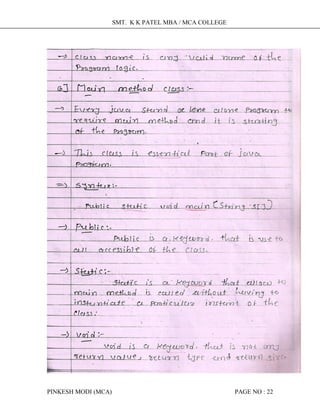 SMT. K K PATEL MBA / MCA COLLEGE
→ class name is any valid name of the
Program logic.
6] Main method class :-
→ Every java stand alone Program to
require main method and it is starting
of the program.
→ This class is essential Part of java
Program.
⇒ Syntax:-
Public static void main (String s[])
→ Public :-
Public is a keyword. that is use to
all accessible of the class.
→ Static :-
Static is a keyword that allow to
main method is called without having to
instantiate a particular instant of the
class.
→ void :-
void is a keyword. that is not any
return value, return type and return
PINKESH MODI (MCA) PAGE NO : 22